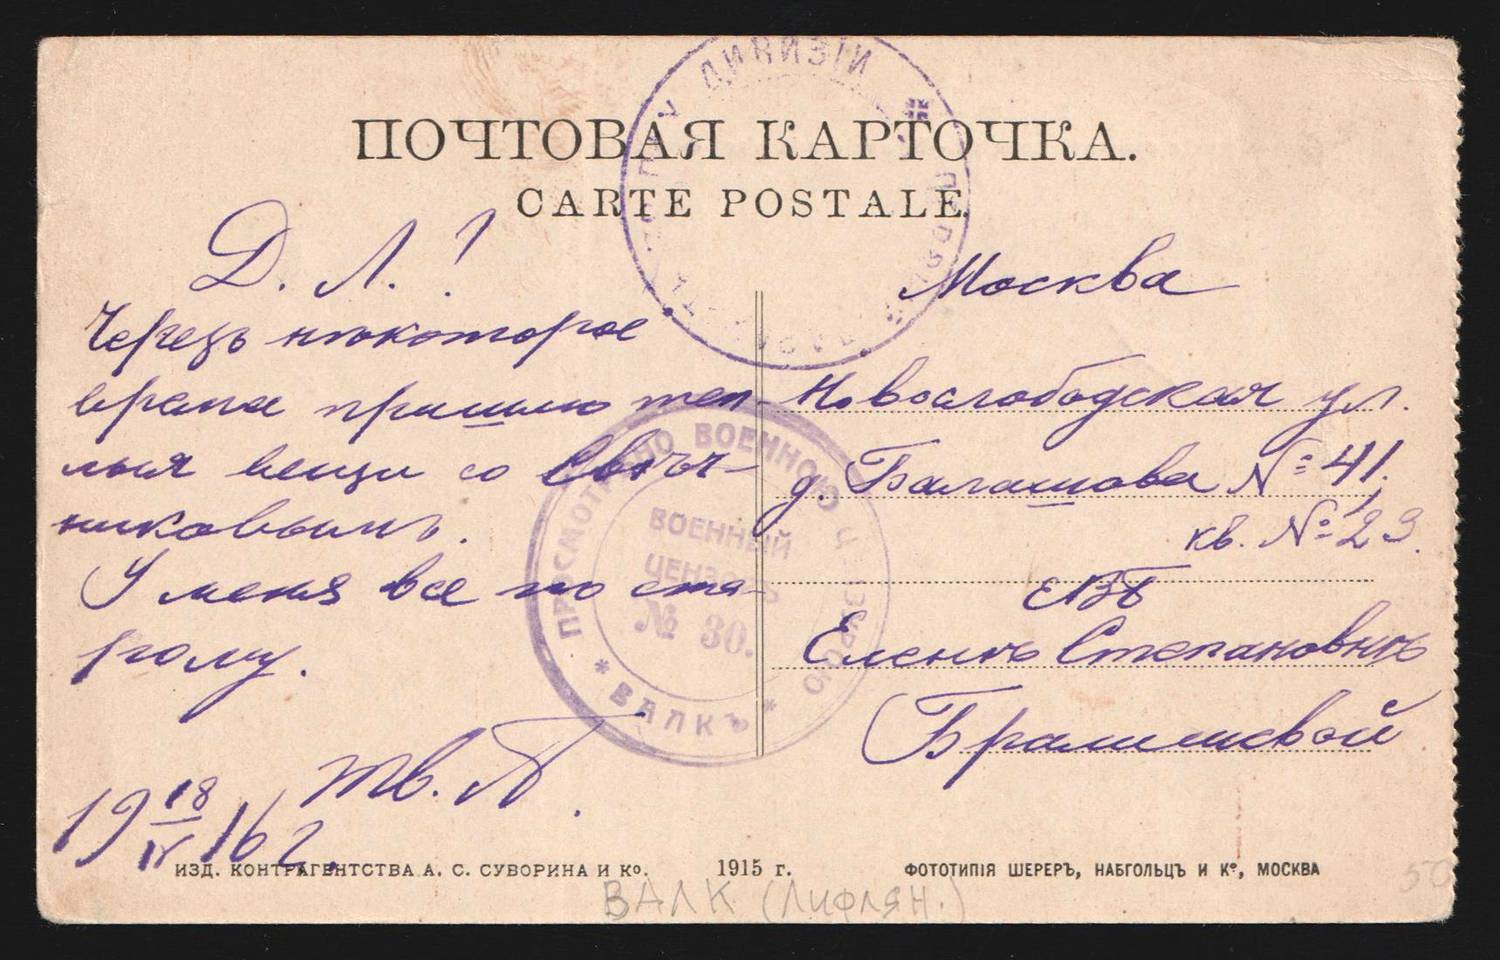 ПОЧТОВАЯ КАРТОЧКА.
CARTE POSTALE.
ДИВИЗІИ
Д. Л.!
Черезъ нѣкоторое
время пришлю теп-
лыя вещи со Свѣч-
никовымъ.
У меня все по ста-
рому.
Тв. А.
19 18/IV 16 г.
Москва
Новослободская ул.
д. Балашова № 41.
кв. № 23.
ЕВБ
Еленѣ Степановнѣ
ПРОСМОТРѢНО ВОЕННОЮ ЦЕНЗУРОЮ
ВОЕННЫЙ
ЦЕНЗОРЪ
№ 30.
* ВАЛКЪ *
ИЗД. КОНТРАГЕНТСТВА А. С. СУВОРИНА И Ко.
1915 г.
ФОТОТИПІЯ ШЕРЕРЪ, НАБГОЛЬЦЪ И Ко, МОСКВА
ВАЛК (ЛИФЛЯН.)
50